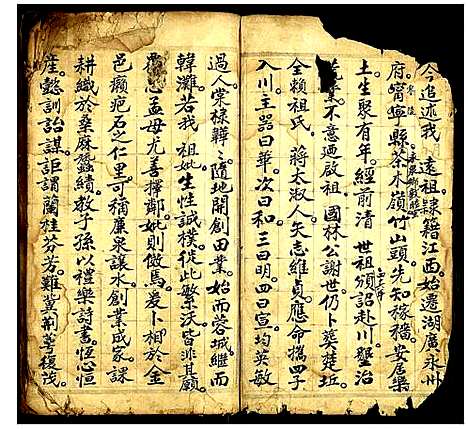 今追述我 遠祖隸籍江西始遷湖廣永州
府甯寧縣茶木嶺竹山頭先知稼穡安居樂
土生聚有年經前清 世祖頒詔赴川墾治
業不意廼啟祖 國林公謝世仍卜葬楚坵
全賴祖氏 蔣太淑人矢志維貞應命攜四子
入川主器曰華次曰和三曰明四曰宣均英敏
過人棠棣韡韡隨地開創田業始而蓉城繼而
韓灘若我 祖妣生性誠樸從此繁沃皆非其願
孟母尤善擇鄰妣則倣焉爰卜相於金
邑癩疤石之仁里可稱廉泉讓水創業成家課
耕織於桑麻蠶績教子孫以禮樂詩書恆心恒
產懿訓詒謀詎謂蘭桂芬芳難冀荊萼復茂